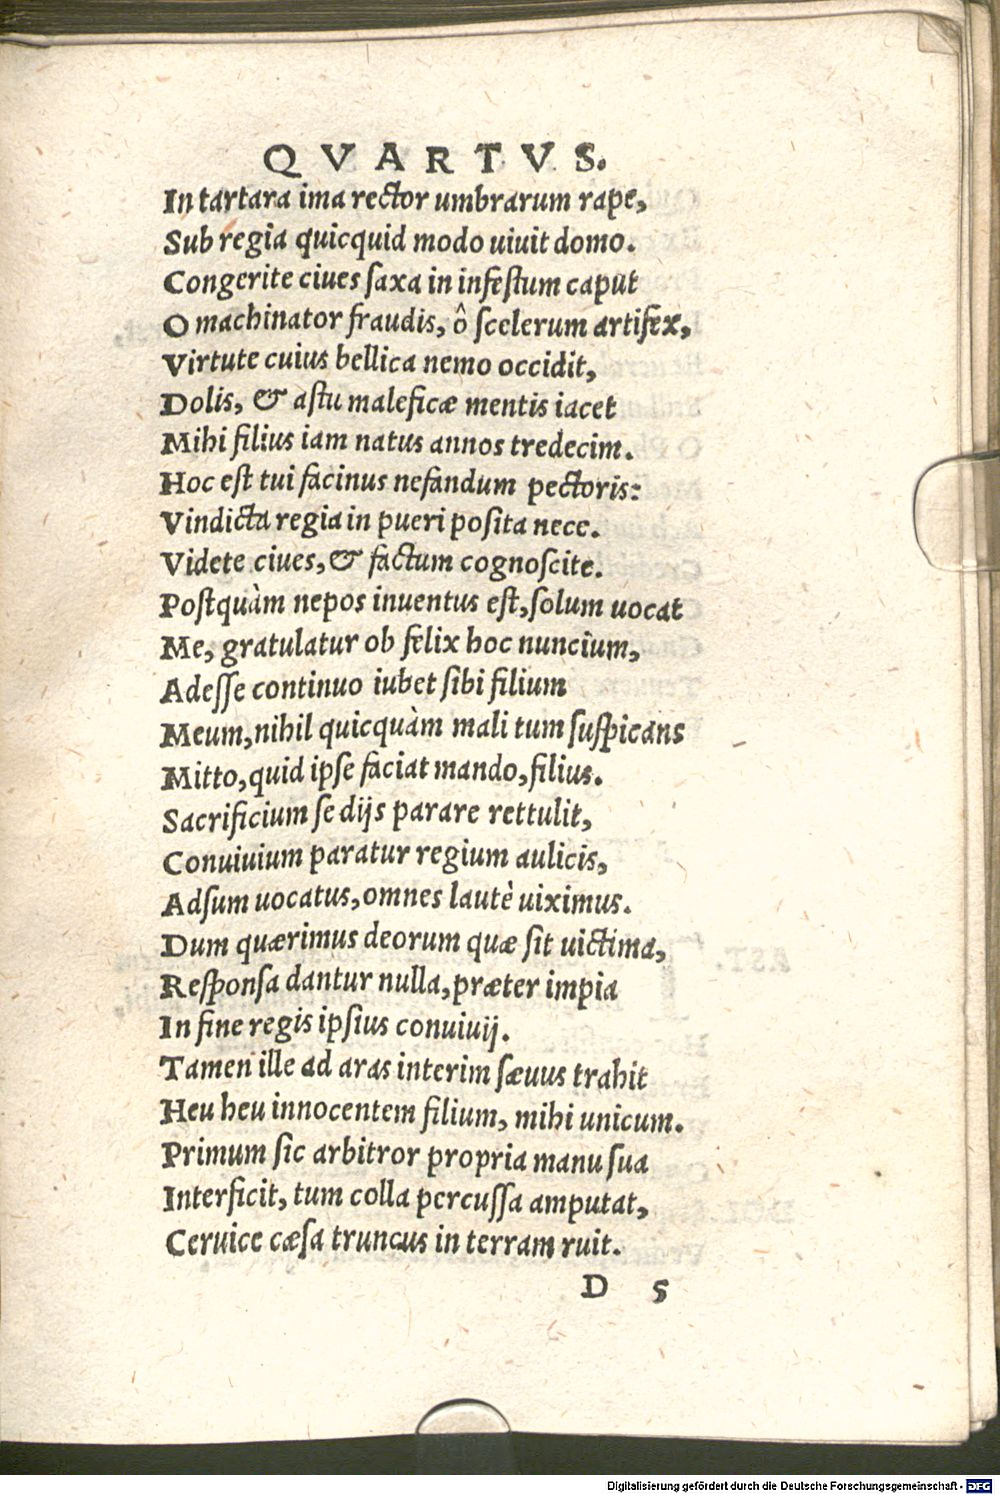 QVARTVS.
In tartara ima rector umbrarum rape,
Sub regia quicquid modo uiuit domo.
Congerite ciues ſaxa in infeſtum caput
O machinator fraudis, ô ſcelerum artifex,
Virtute cuius bellica nemo occidit,
Dolis, & aſtu maleficæ mentis iacet
Mihi filius iam natus annos tredecim.
Hoc eſt tui facinus nefandum pectoris:
Vindicta regia in pueri poſita nece.
Videte ciues, & factum cognoſcite.
Poſtquàm nepos inuentus eſt, ſolum uocat
Me, gratulatur ob felix hoc nuncium,
Adeſſe continuo iubet ſibi filium
Meum, nihil quicquàm mali tum ſuſpicans
Mitto, quid ipſe faciat mando, filius.
Sacrificium ſe dijs parare rettulit,
Conuiuium paratur regium aulicis,
Adſum uocatus, omnes lautè uiximus.
Dum quærimus deorum quæ ſit uictima,
Reſponſa dantur nulla, præter impia
In fine regis ipſius conuiuij.
Tamen ille ad aras interim ſæuus trahit
Heu heu innocentem filium, mihi unicum.
Primum ſic arbitror propria manu ſua
Interficit, tum colla percuſſa amputat,
Ceruice cæſa truncus in terram ruit.
D 5
Digitalisierung gefördert durch die Deutsche Forschungsgemeinschaft - DFG